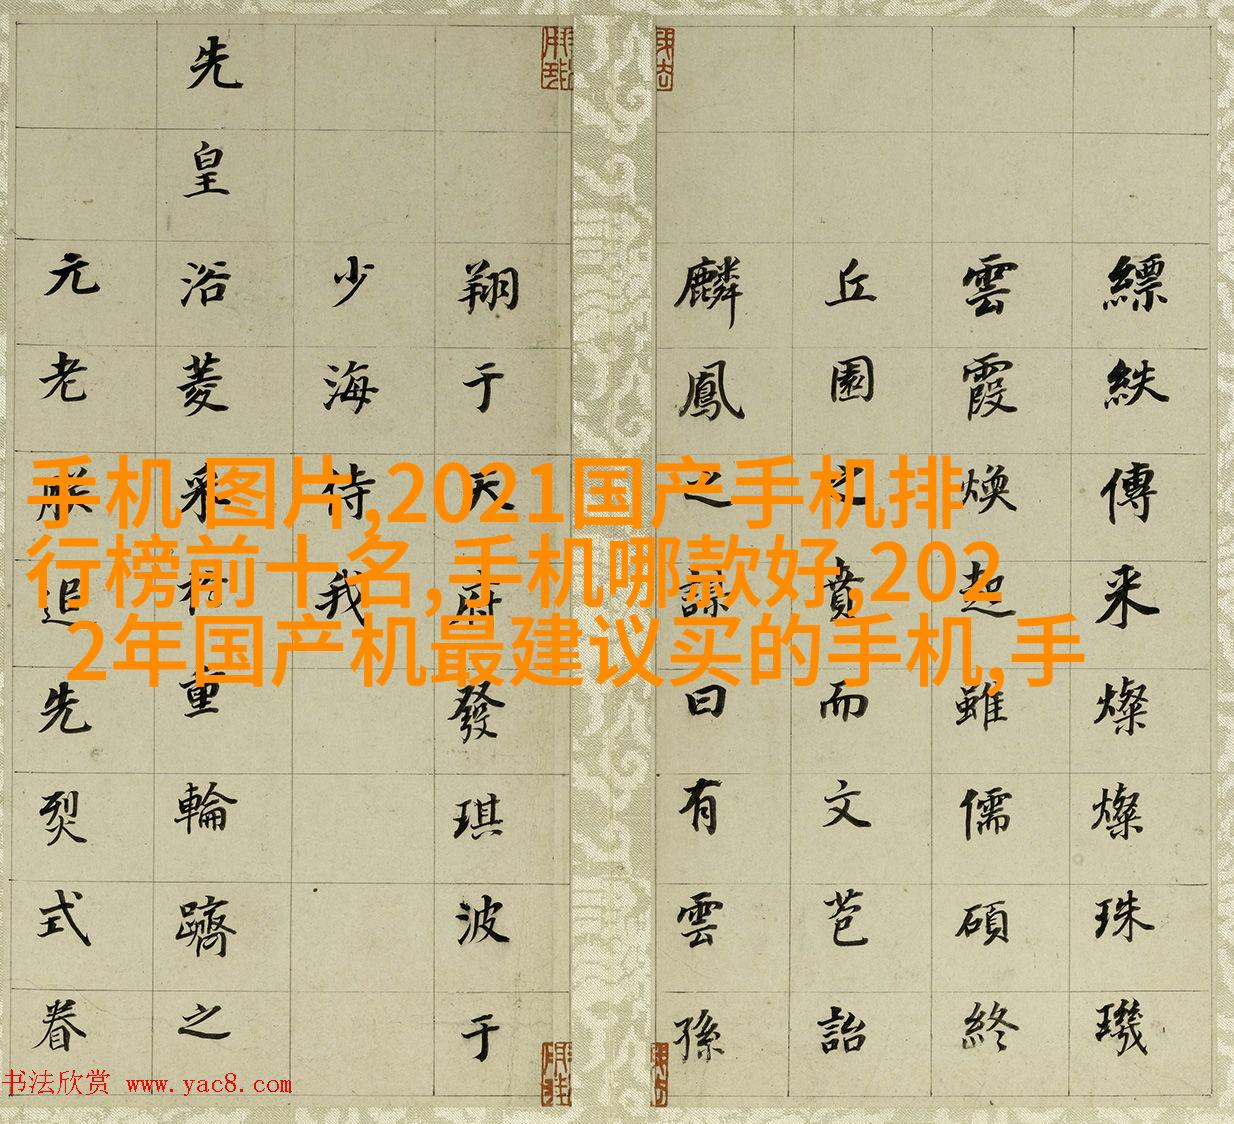 手机图片,2021国产手机排
行榜前十名,手机哪款好,202
2年国产机最建议买的手机,手
縹紩傳来燦燦珠璣
雲霞煥起雖儒碩終
丘園賁而文苞詒
麟鳳之謠曰有雲孫
翔于天府發琪波于
少海待我
先皇浴菱彩於重輪躋之
元老朕追先烈式眷
书法欣赏 www.yac8.com